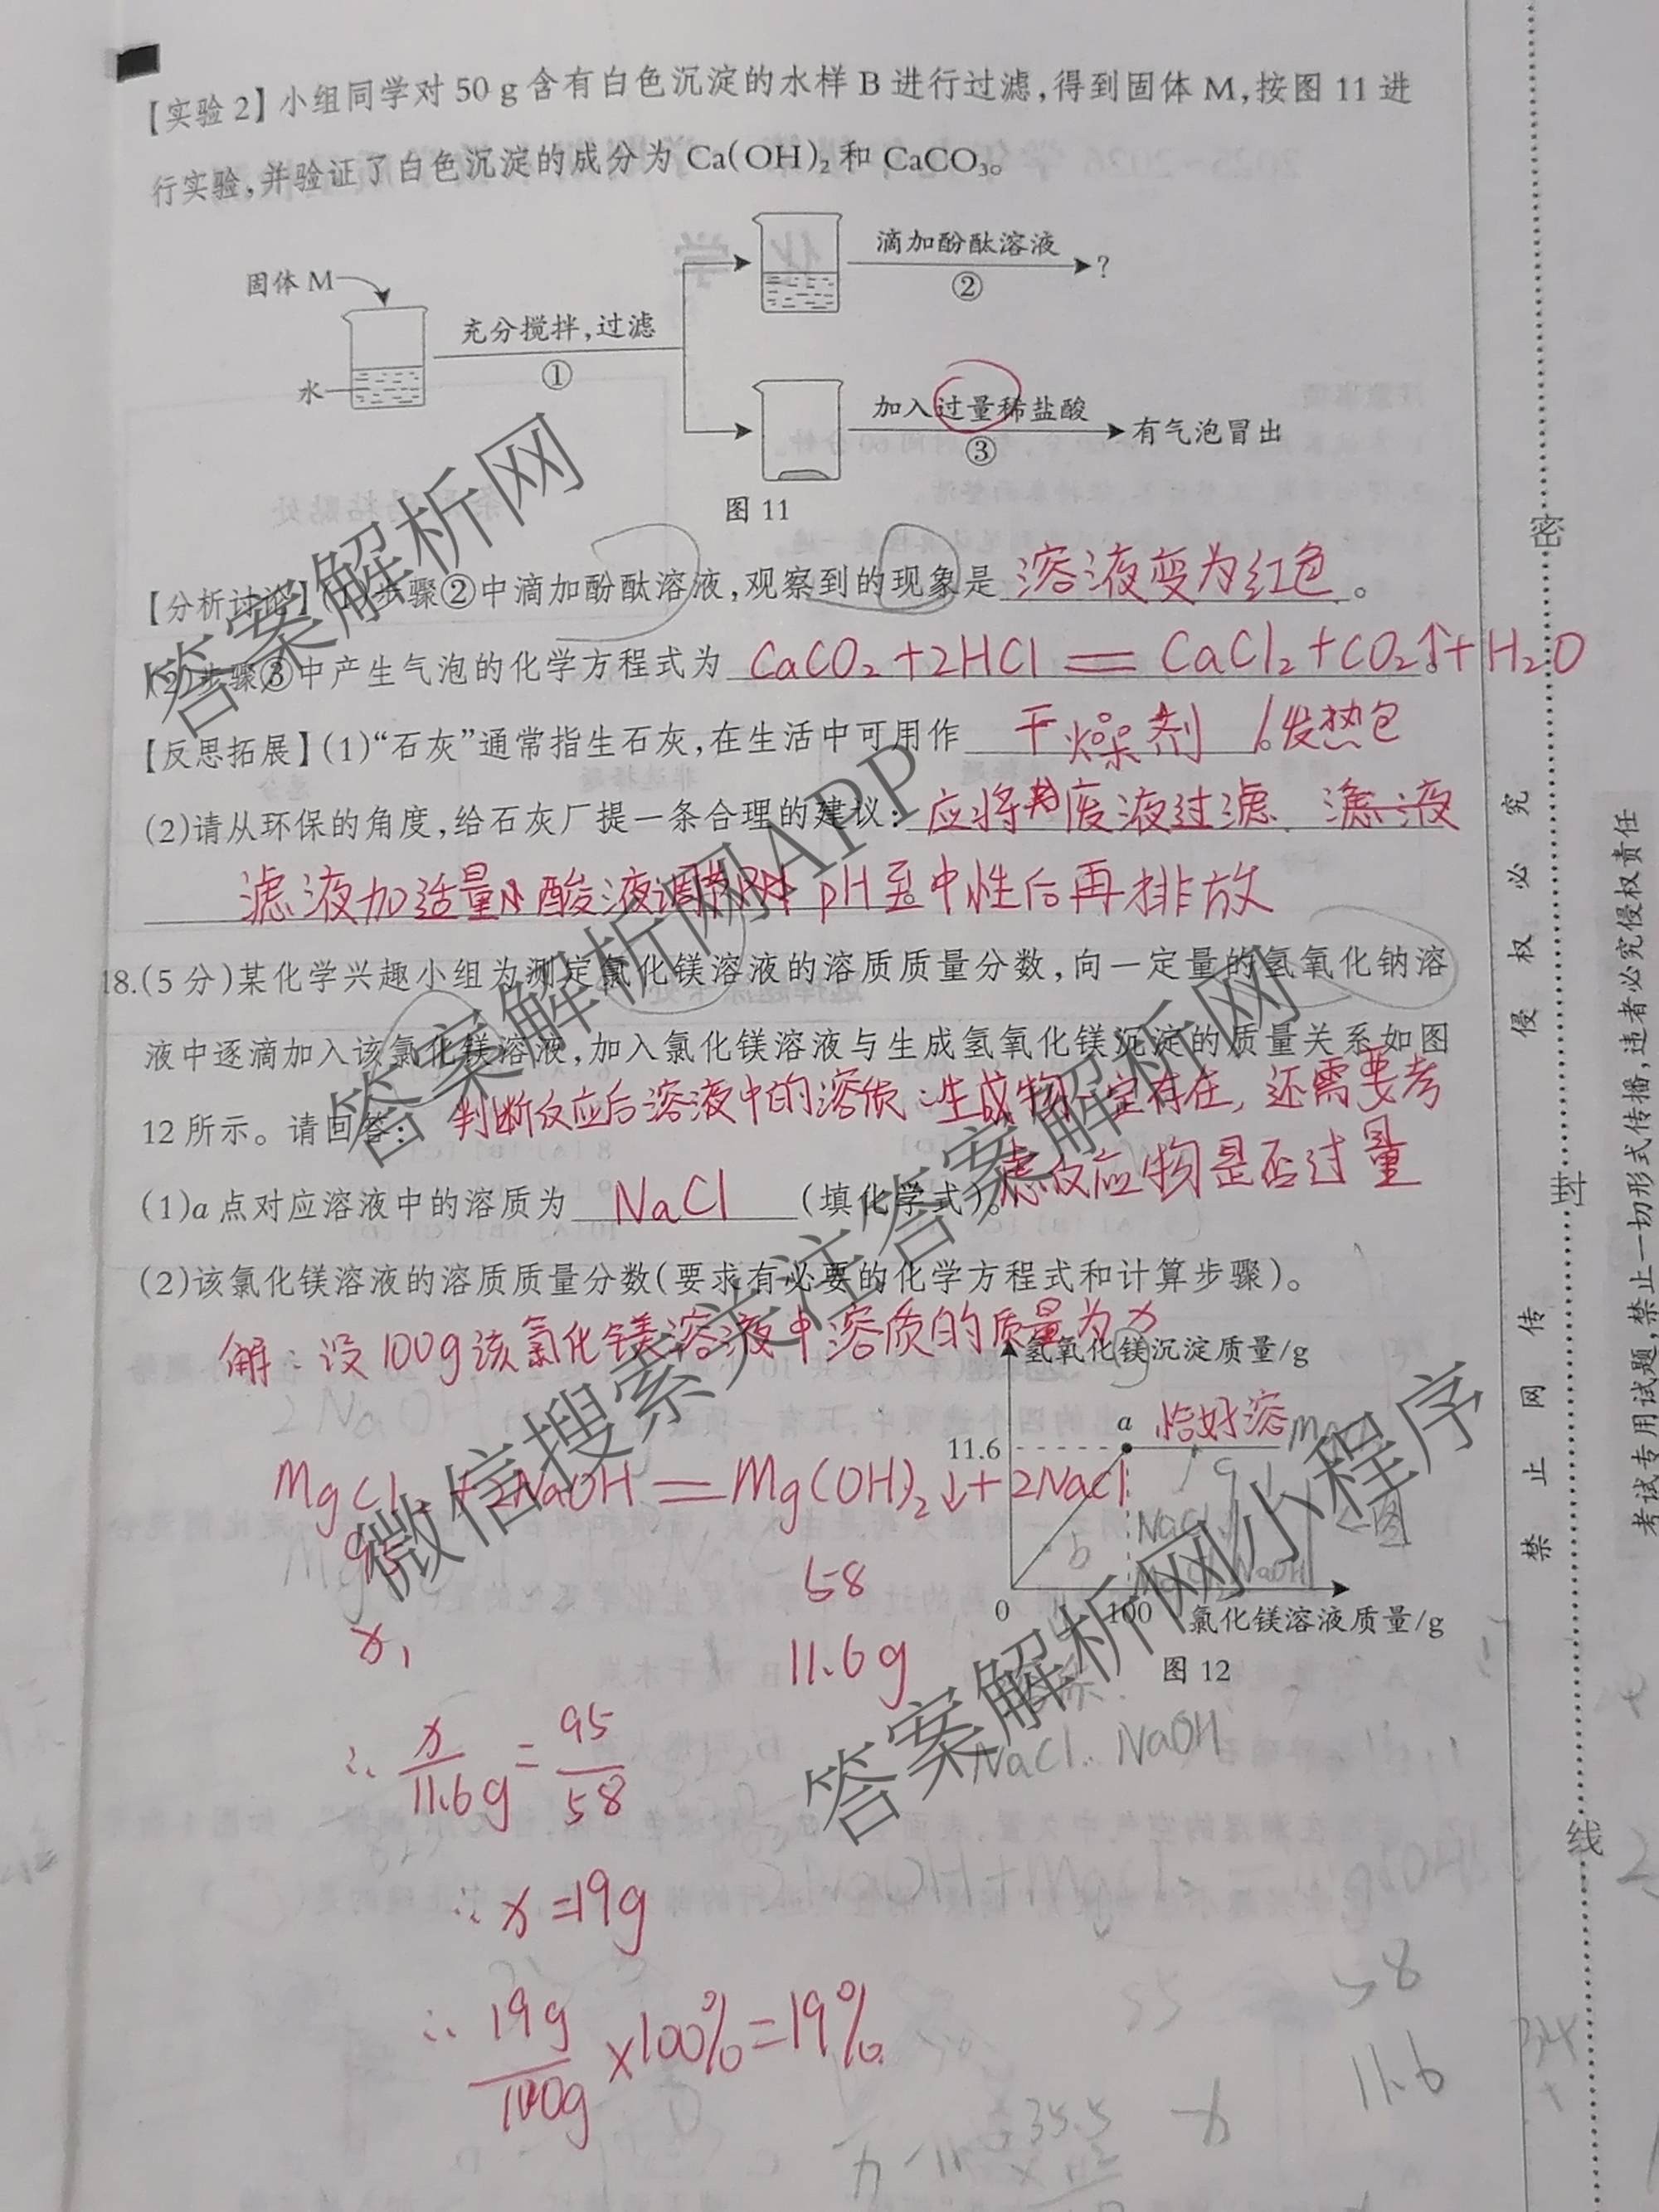 【实验2】小组同学对50 g含有白色沉淀的水样B进行过滤,得到固体M,按图11进
行实验,并验证了白色沉淀的成分为Ca(OH)₂和CaCO₃。
固体M
水
充分搅拌,过滤
①
滴加酚酞溶液
②
?
加入过量稀盐酸
③
有气泡冒出
图 11
【分析讨论】(1)步骤②中滴加酚酞溶液,观察到的现象是 溶液变为红色 。
(2)步骤③中产生气泡的化学方程式为 CaCO₂+2HCl=CaCl₂+CO₂↑+H₂O
【反思拓展】(1)“石灰”通常指生石灰,在生活中可用作 干燥剂 / 发热包
(2)请从环保的角度,给石灰厂提一条合理的建议: 应将废液过滤、滤液
滤液加适量酸液调节 pH至中性后再排放
18.(5分)某化学兴趣小组为测定氯化镁溶液的溶质质量分数,向一定量的氢氧化钠溶
液中逐滴加入该氯化镁溶液,加入氯化镁溶液与生成氢氧化镁沉淀的质量关系如图
12所示。请回答:
判断反应后溶液中的溶质:生成物一定存在,还需要考
虑反应物是否过量
(1)a点对应溶液中的溶质为 NaCl (填化学式)。
(2)该氯化镁溶液的溶质质量分数(要求有必要的化学方程式和计算步骤)。
解:设100g该氯化镁溶液中溶质的质量为x
氢氧化镁沉淀质量/g
11.6
a
恰好溶
b
c
NaCl
NaOH
0
100
氯化镁溶液质量/g
图 12
MgCl₂+2NaOH=Mg(OH)₂↓+2NaCl
95
58
x,
11.6g
∴ x/11.6g=95/58
∴ x=19g
∴ 19g/100g×100%=19%
NaCl. NaOH
2NaOH
58
11.6
x
35.5
密
封
线
禁止网传 侵权必究
考试专用试题,禁止一切形式传播,违者必究侵权责任
答案解析网
答案解析网APP
答案解析网
微信搜索关注答案解析网
答案解析网小程序